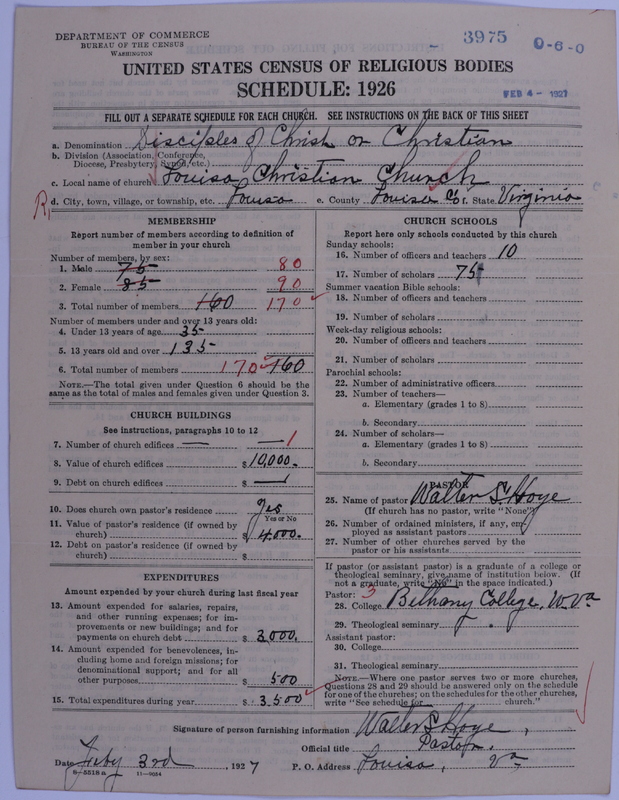 DEPARTMENT OF COMMERCE
BUREAU OF THE CENSUS
WASHINGTON
3975 0-6-0
UNITED STATES CENSUS OF RELIGIOUS BODIES
SCHEDULE: 1926
FEB 4 - 1927
FILL OUT A SEPARATE SCHEDULE FOR EACH CHURCH. SEE INSTRUCTIONS ON THE BACK OF THIS SHEET
a. Denomination Disciples of Christ or Christian
b. Division (Association, Conference,
Diocese, Presbytery, Synod, etc.)
c. Local name of church Louisa Christian Church
d. City, town, village, or township, etc. Louisa e. County Louisa Co f. State Virginia
MEMBERSHIP
Report number of members according to definition of
member in your church
Number of members, by sex:
1. Male 75 80
2. Female 85 90
3. Total number of members 160 170
Number of members under and over 13 years old:
4. Under 13 years of age 35
5. 13 years old and over 135
6. Total number of members 170 160
NOTE.—The total given under Question 6 should be the
same as the total of males and females given under Question 3.
CHURCH BUILDINGS
See instructions, paragraphs 10 to 12
7. Number of church edifices 1
8. Value of church edifices $ 10,000.
9. Debt on church edifices $
10. Does church own pastor's residence yes
Yes or No
11. Value of pastor's residence (if owned by
church) $ 4,000.
12. Debt on pastor's residence (if owned by
church) $
EXPENDITURES
Amount expended by your church during last fiscal year
13. Amount expended for salaries, repairs,
and other running expenses; for im-
provements or new buildings; and for
payments on church debt $ 3,000.
14. Amount expended for benevolences, in-
cluding home and foreign missions; for
denominational support; and for all
other purposes $ 500
15. Total expenditures during year $ 3,500
CHURCH SCHOOLS
Report here only schools conducted by this church
Sunday schools:
16. Number of officers and teachers 10
17. Number of scholars 75
Summer vacation Bible schools:
18. Number of officers and teachers
19. Number of scholars
Week-day religious schools:
20. Number of officers and teachers
21. Number of scholars
Parochial schools:
22. Number of administrative officers
23. Number of teachers—
a. Elementary (grades 1 to 8)
b. Secondary
24. Number of scholars—
a. Elementary (grades 1 to 8)
b. Secondary
PASTOR
25. Name of pastor Walter S. Hoye
(If church has no pastor, write "None")
26. Number of ordained ministers, if any, em-
ployed as assistant pastors
27. Number of other churches served by the
pastor or his assistants
If pastor (or assistant pastor) is a graduate of a college or
theological seminary, give name of institution below. (If
not a graduate, write "No" in the space indicated.)
Pastor: 3
28. College Bethany College, W. Va
29. Theological seminary
Assistant pastor:
30. College
31. Theological seminary
NOTE.—Where one pastor serves two or more churches,
Questions 28 and 29 should be answered only on the schedule
for one of the churches; on the schedules for the other churches,
write "See schedule for church."
Signature of person furnishing information Walter S. Hoye,
Official title Pastor.
Date Feby 3rd, 1927 P. O. Address Louisa, Va
8-5518 a 11-9054